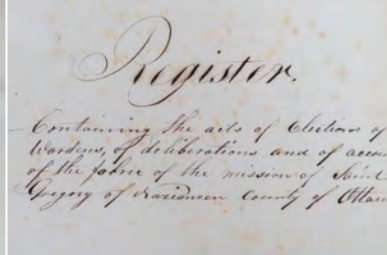 Register.
Containing the acts of Elections of
Wardens, of deliberations and of accou
of the fabric of the mission of Saint
Gregory of Nazianzen County of Ottaw